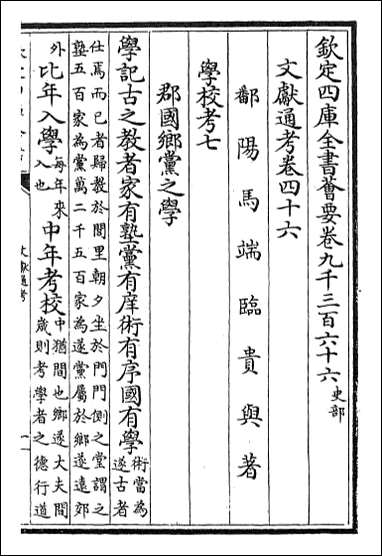 欽定四庫全書薈要卷九千三百六十六 史部
文獻通考卷四十六
鄱陽馬端臨貴與著
學校考七
郡國鄉黨之學
學記古之教者家有塾黨有庠術有序國有學 術當為遂古者
仕焉而已者歸教於閭里朝夕坐於門門側之堂謂之
塾五百家為黨萬二千五百家為遂黨屬於鄉遂遠郊
外 比年入學 每年來入也 中年考校 中猶間也鄉遂大夫間歲則考學者之德行道
文獻通考